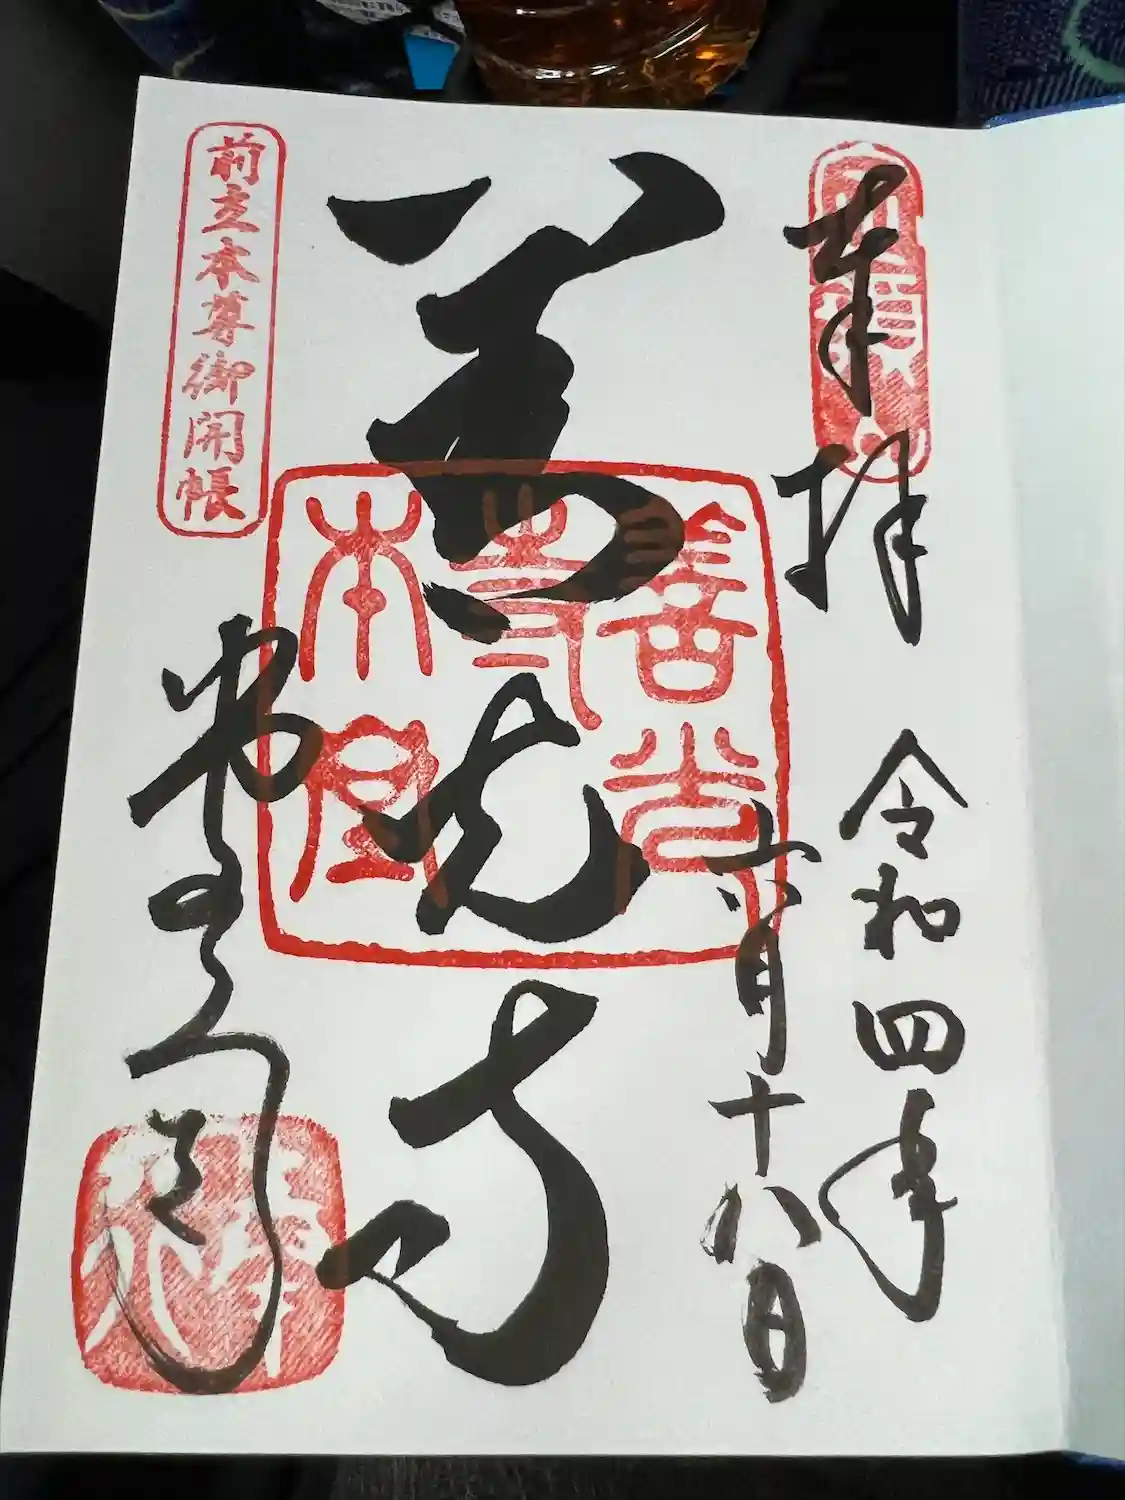 奉拝
令和四年
六月十八日
善光寺
善光
尊
本堂
前立本尊御開帳